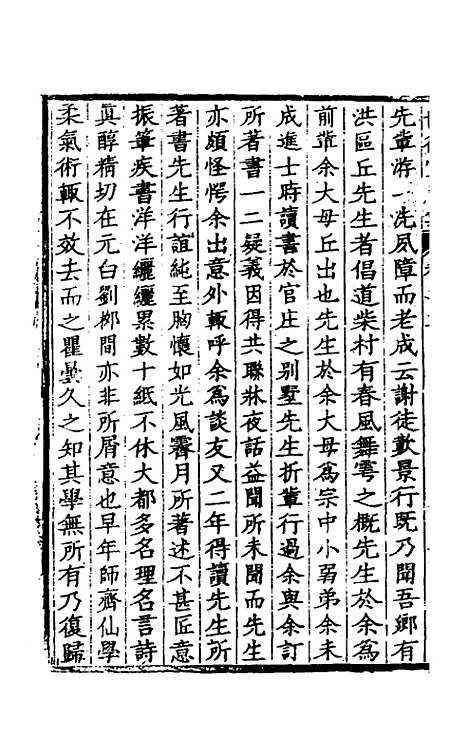 先軰游一洗夙障而老成云謝徒歎景行既乃聞吾鄉有
洪區丘先生者倡道柴村有春風舞雩之概先生於余爲
前軰余大母丘出也先生於余大母爲宗中小弱弟余未
成進士時讀書於官庄之别墅先生折軰行過余與余訂
所著書一二疑義因得共聯牀夜話益聞所未聞而先生
亦頗怪愕余出意外輒呼余爲談友又二年得讀先生所
著書先生行誼純至胸懷如光風霽月所著述不甚匠意
振筆疾書洋洋纚纚累數十紙不休大都多名理名言詩
眞醇精切在元白劉栁間亦非所屑意也早年師齊仙學
柔氣術輒不效去而之瞿曇久之知其學無所有乃復歸